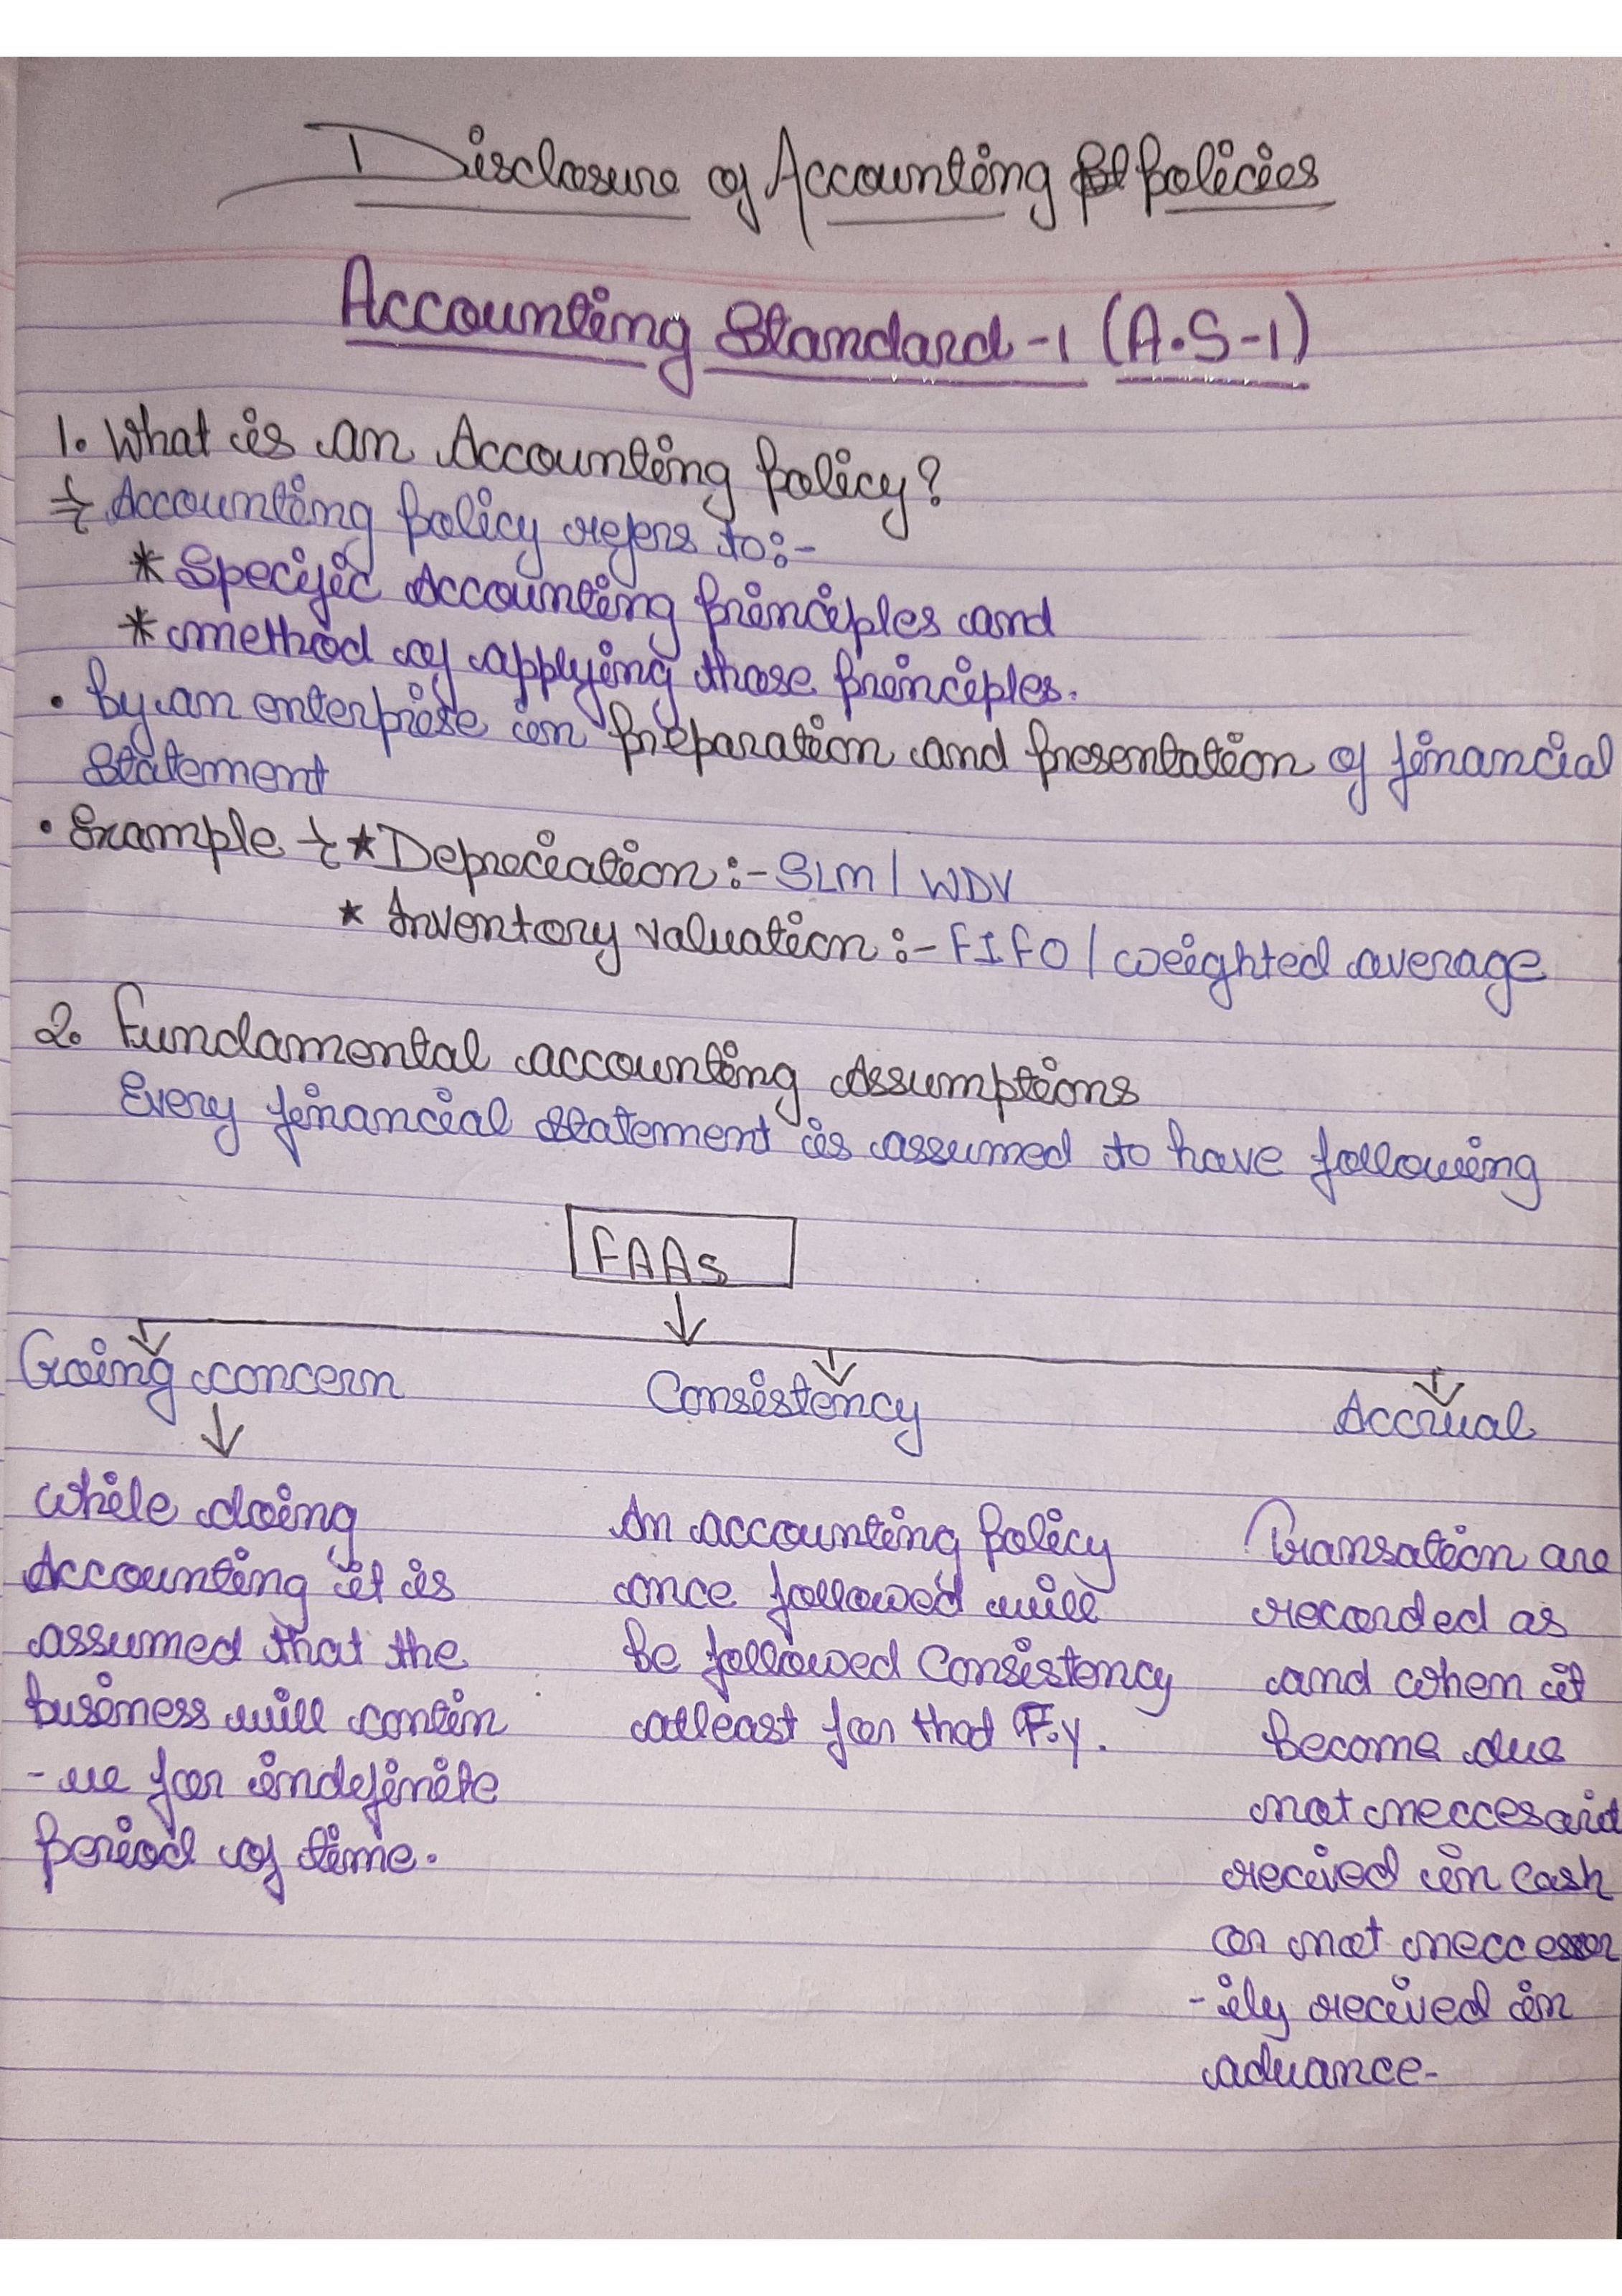 Disclosure of Accounting Policies
Accounting Standard-1 (A.S-1)
1. What is an Accounting Policy?
Accounting Policy refers to:-
* Specific Accounting Principles and
* method of applying those Principles.
• by an enterprise in preparation and presentation of financial
Statement
• Example ★ Depreciation:- SLM / WDV
★ Inventory valuation:- FIFO / weighted average
2. Fundamental accounting Assumptions
Every financial statement is assumed to have following
FAAs
Going concern
Consistency
Accrual
while doing
Accounting it is
assumed that the
business will contin
-ue for indefinite
Period of time.
An accounting Policy
once followed will
be followed Consistency
atleast for that F.y.
Transation are
recorded as
and when it
become due
not
recived in cash
or not neccesser
-ily recived in
advance-